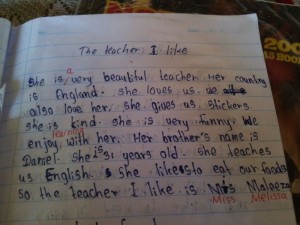 The teacher I like
a
she is very beautiful teacher Her country
is England. she loves us. we
also love her. she gives us stickers
she is kind. she is very funny. we
learning
enjoy with her. Her brother's name is
Daniel. she is 31 years old. she teaches
us English. she likes to eat our foods
so the teacher I like is
Miss Melissa